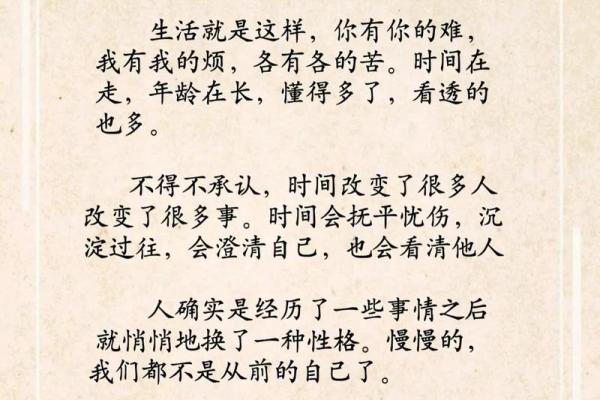 生活就是这样，你有你的难，
我有我的烦，各有各的苦。时间在
走，年龄在长，懂得多了，看透的
也多。
不得不承认，时间改变了很多人
改变了很多事。时间会抚平忧伤，沉
淀过往，会澄清自己，也会看清他人
人确实是经历了一些事情之后
就悄悄地换了一种性格。慢慢的，
我们都不是从前的自己了。